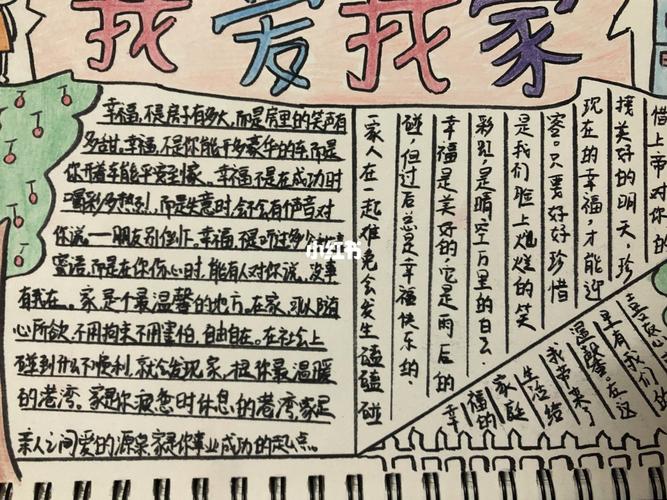 我爱我家
幸福,不是房子有多大,而是房里的笑声有
多甜。幸福,不是你能开多豪华的车,而是
你开着车能平安到家。幸福不是在成功时
喝彩多热烈,而是失意时,会有个声音对
你说:一朋友别倒下。幸福,不是听过多少
蜜语,而是在你伤心时,能有人对你说,没事
有我在。家是个最温馨的地方。在家,可以随
心所欲,不用拘束不用害怕,自由自在。在社会上
碰到什么不便利,就会发现家,是你最温暖
的港湾。家是你疲惫时休息的港湾家是
亲人之间爱的源泉,家是你事业成功的起点。
小红书
惜上帝对你的
找美好的明天,珍
现在的幸福,才能迎
容。只要好好珍惜
是我们脸上灿烂的笑
彩虹,是晴空万里的白云,
幸福是美好的,它是雨后的
碰,但过后总是幸福快乐的,
一家人在一起难免会发生磕磕碰
喜怒
早有我们的
温馨。在这
我带来了
生活给
家庭
福的
幸